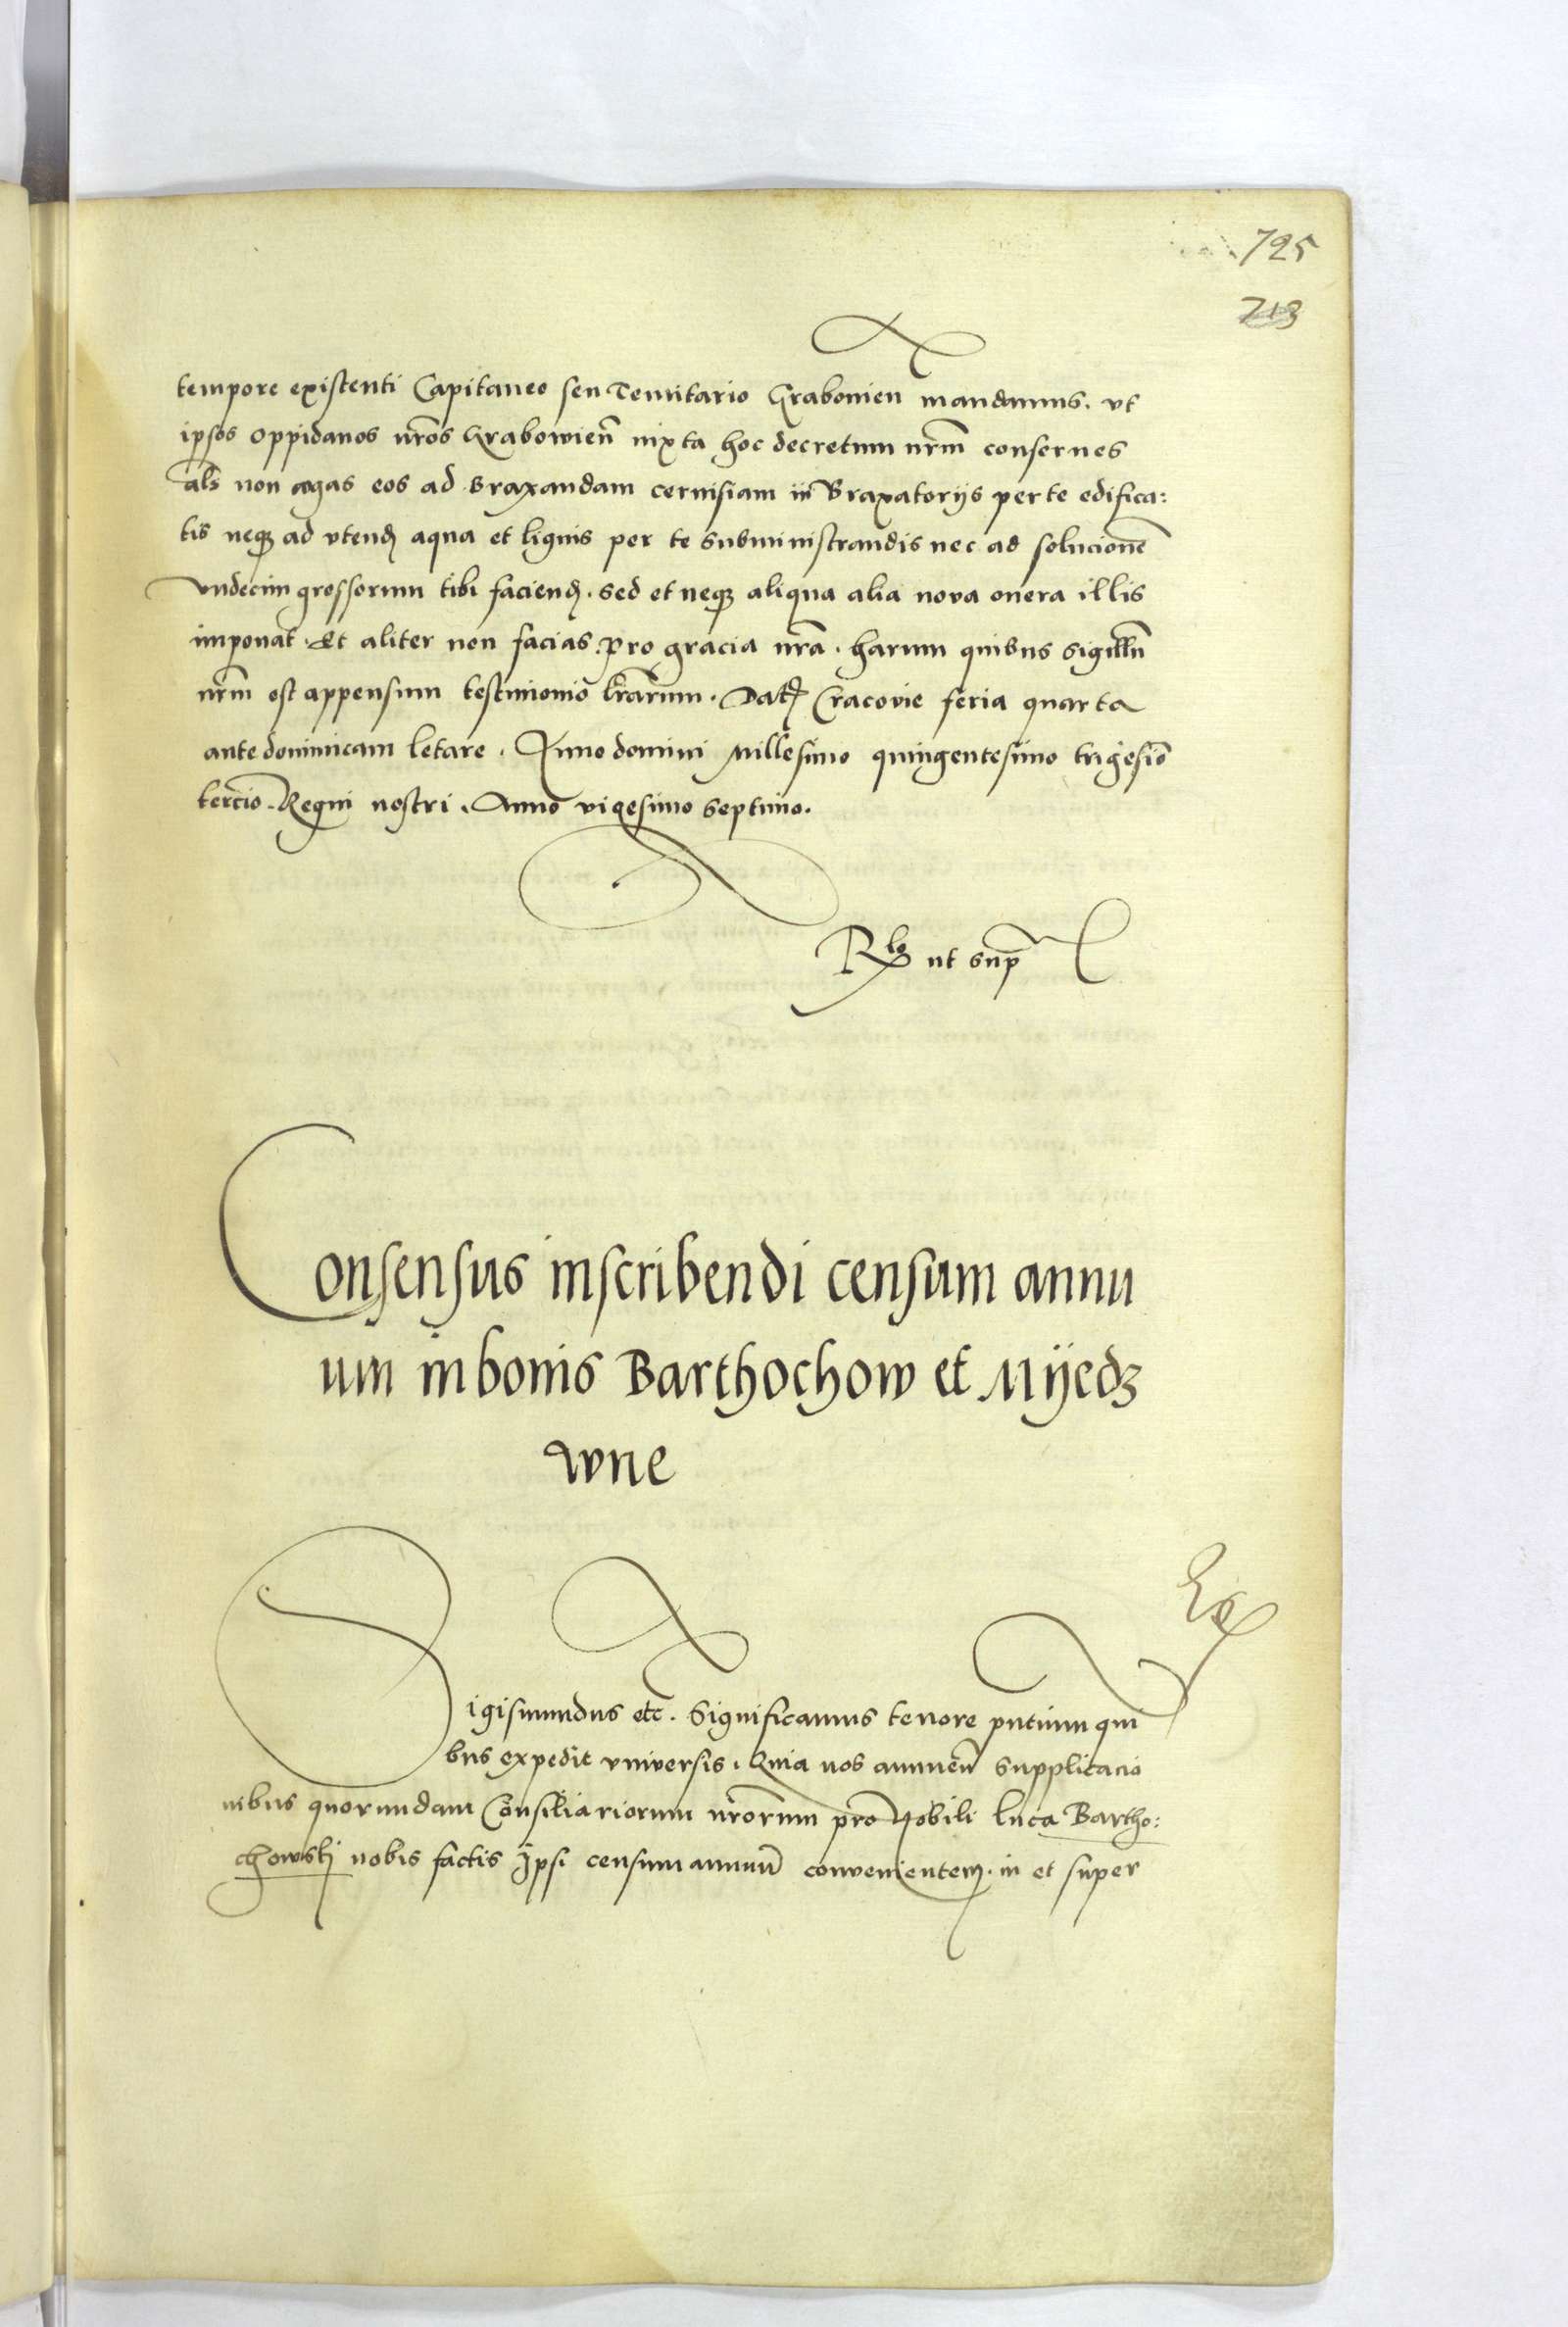 725
713
tempore existenti Capitaneo seu Tenutario Grabouien mandamus. vt
ipsos oppidanos nr̄os Grabowien̄ iuxta hoc decretum nrm̄ conserues
als̄ non cogas eos ad braxandam ceruisiam in Braxatorijs per te edifica:
tis neqꝫ ad vtendꝭ aqua et lignis per te subministrandis nec ad solucionē
vndecim grossorum tibi faciendꝭ. sed et neqꝫ aliqua alia nova onera illis
imponat̄. Et aliter non facias. pro gracia nr̄a. harum quibus sigillū
nrm̄ est appensum testimonio lr̄arum. Datꝭ Cracovie feria quarta
ante dominicam letare. Anno domini Millesimo quingentesimo trigesiō
tercio. Regni nostri. Anno vigesimo septimo.
Rlo ut sup̄
Consensus inscribendi censum annu
um in bonis Barthochow et Mÿedz
wne
Sigismundus etc. Significamus tenore pn̄tium qui
bus expedit vniversis. Quia nos annuen̄ supplicacio
nibus quorundam Consiliariorum nr̄orum pro Nobili Luca Bartho:
chowskj nobis factis Ipsi censum annuū convenientem. in et super